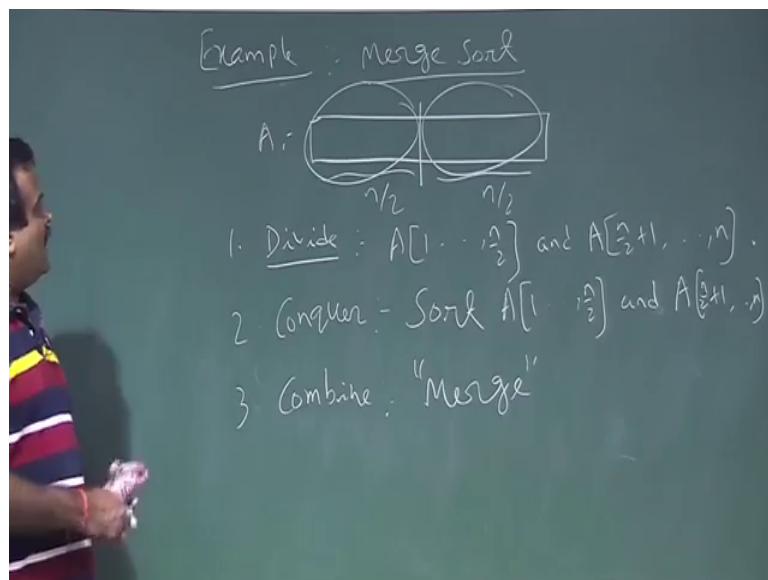 Example : Merge Sort
A :-
n/2 n/2
1. Divide :- A[1 . . , n/2] and A[n/2+1, . . , n] .
2. Conquer :- Sort A[1 . . , n/2] and A[n/2+1, . . , n]
3. Combine : "Merge"